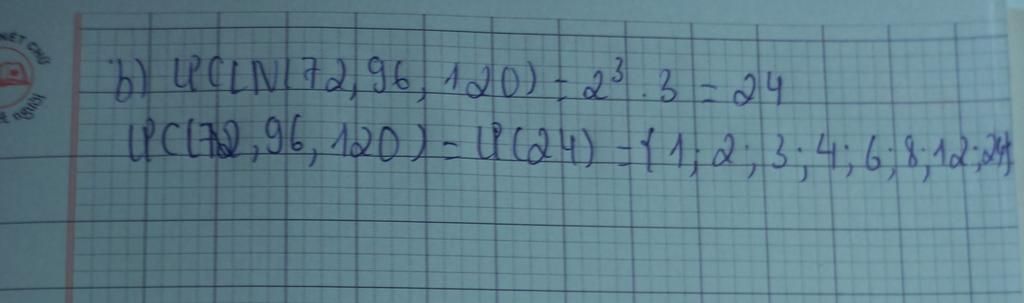 NÉT CHỮ
b) ƯCLN(72, 96, 120) = 2³ . 3 = 24
ƯC(72, 96, 120) = Ư(24) = {1; 2; 3; 4; 6; 8; 12; 24}
NGƯỜI